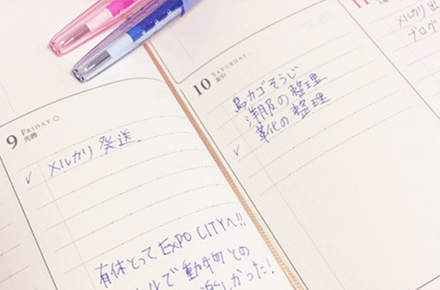 9 FRIDAY
先勝
✓ メルカリ 発送
有休とってEXPO CITYへ!!
ルで動物との
楽しかった!
10 SATURDAY
友引
鳥カゴそうじ
洋服の整理
✓ 革化の整理
11
メルカリ
ブログ